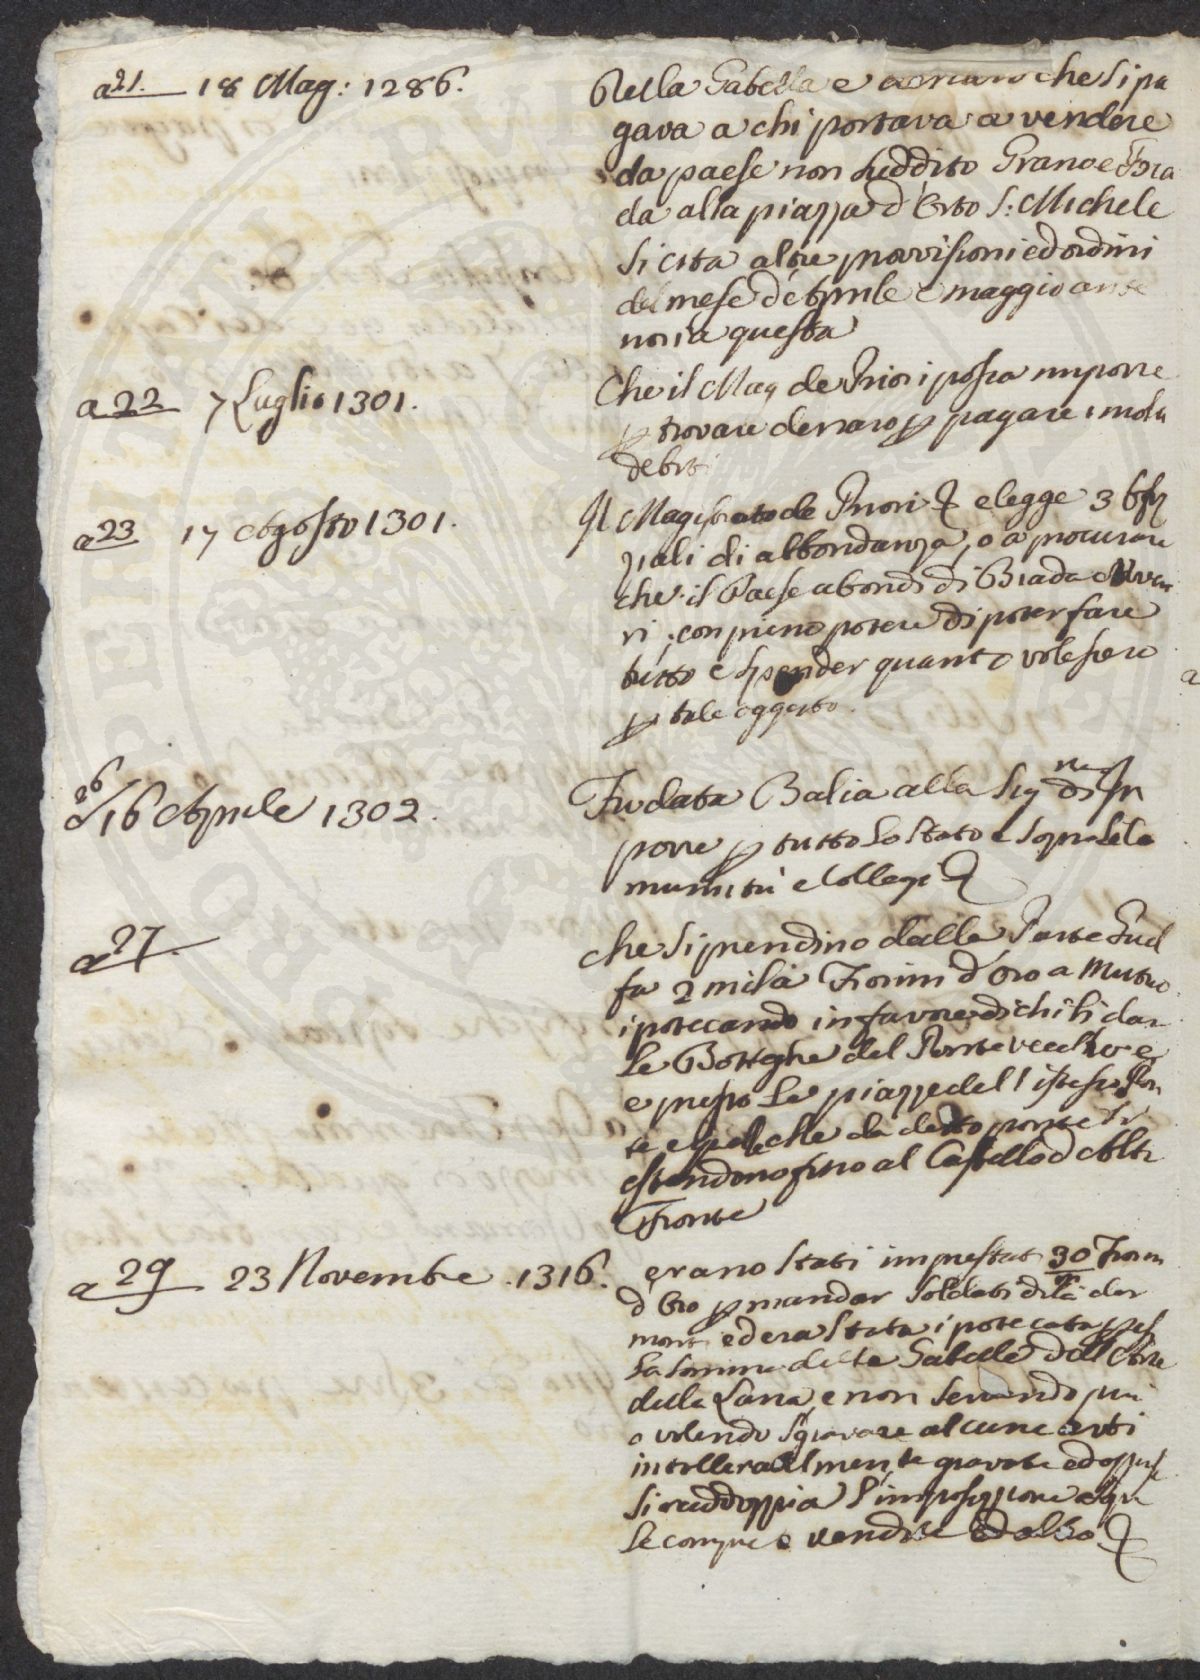 a 21. 18 Mag: 1286.
Della Gabella e che si pa
gava a chi portava a vendere
da paese non suddito Grano e Bia
da alla piazza d'Orto S: Michele
si cita altre provisioni ed ordini
del mese d'Aprile e maggio ante
riori a questa
a 22 7 Luglio 1301.
Che il Mag de Priori possa imporre
p trovare denaro p pagare i molti
debiti
a 23 17 Agosto 1301.
Il Magistrato de Priori elegge 3 Offi
ziali di abbondanza, o a procurare
che il Paese abondi di Biada e Vive
ri, con pieno potere di poter fare
tutto e spender quanto volessero
p tale oggetto.
a 26 16 Aprile 1302.
Fu data Balia alla Sig ria d'Im
porre p tutto lo Stato e sopra le Co
munità e Collegi
a 27.
che si prendino dalla Parte Guel
fa 2 mila Fiorini d'Oro a Mutuo
ipotecando in favore di chi li da
le Botteghe del Ponte vecchio e
e presso le piazze del l'istesso Pon
te e quelle che da detto ponte si
estendono fino al Castello d'Alta
Fronte
a 29 23 Novembre 1316.
erano stati imprestati 30 Fiorini
d'Oro p mandar Soldati di la da
monti ed era stata ipotecata p es
la somma delle Gabelle dell'Arte
della Lana, e non servendo più
o volendo sgravare alcune arti
intollerabilmente gravate ed oppresse
si raddoppia l'imposizione
le compre e vendite